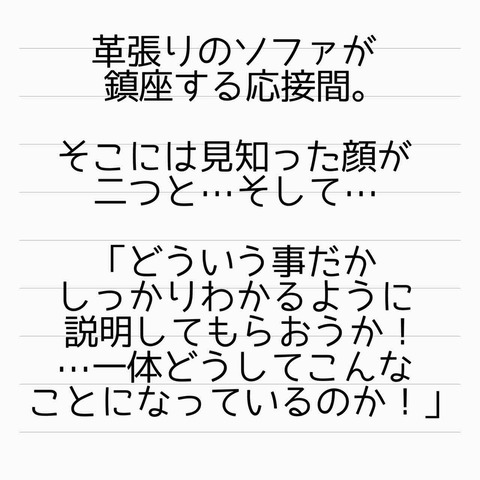 革張りのソファが
鎮座する応接間。
そこには見知った顔が
二つと…そして…
「どういう事だか
しっかりわかるように
説明してもらおうか！
…一体どうしてこんな
ことになっているのか！」